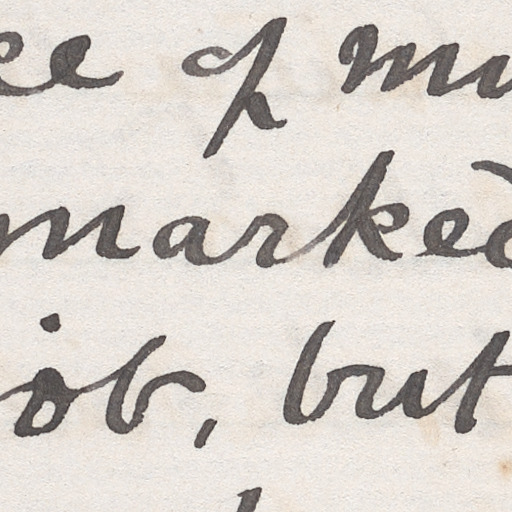 ee of mu
marked
job, but